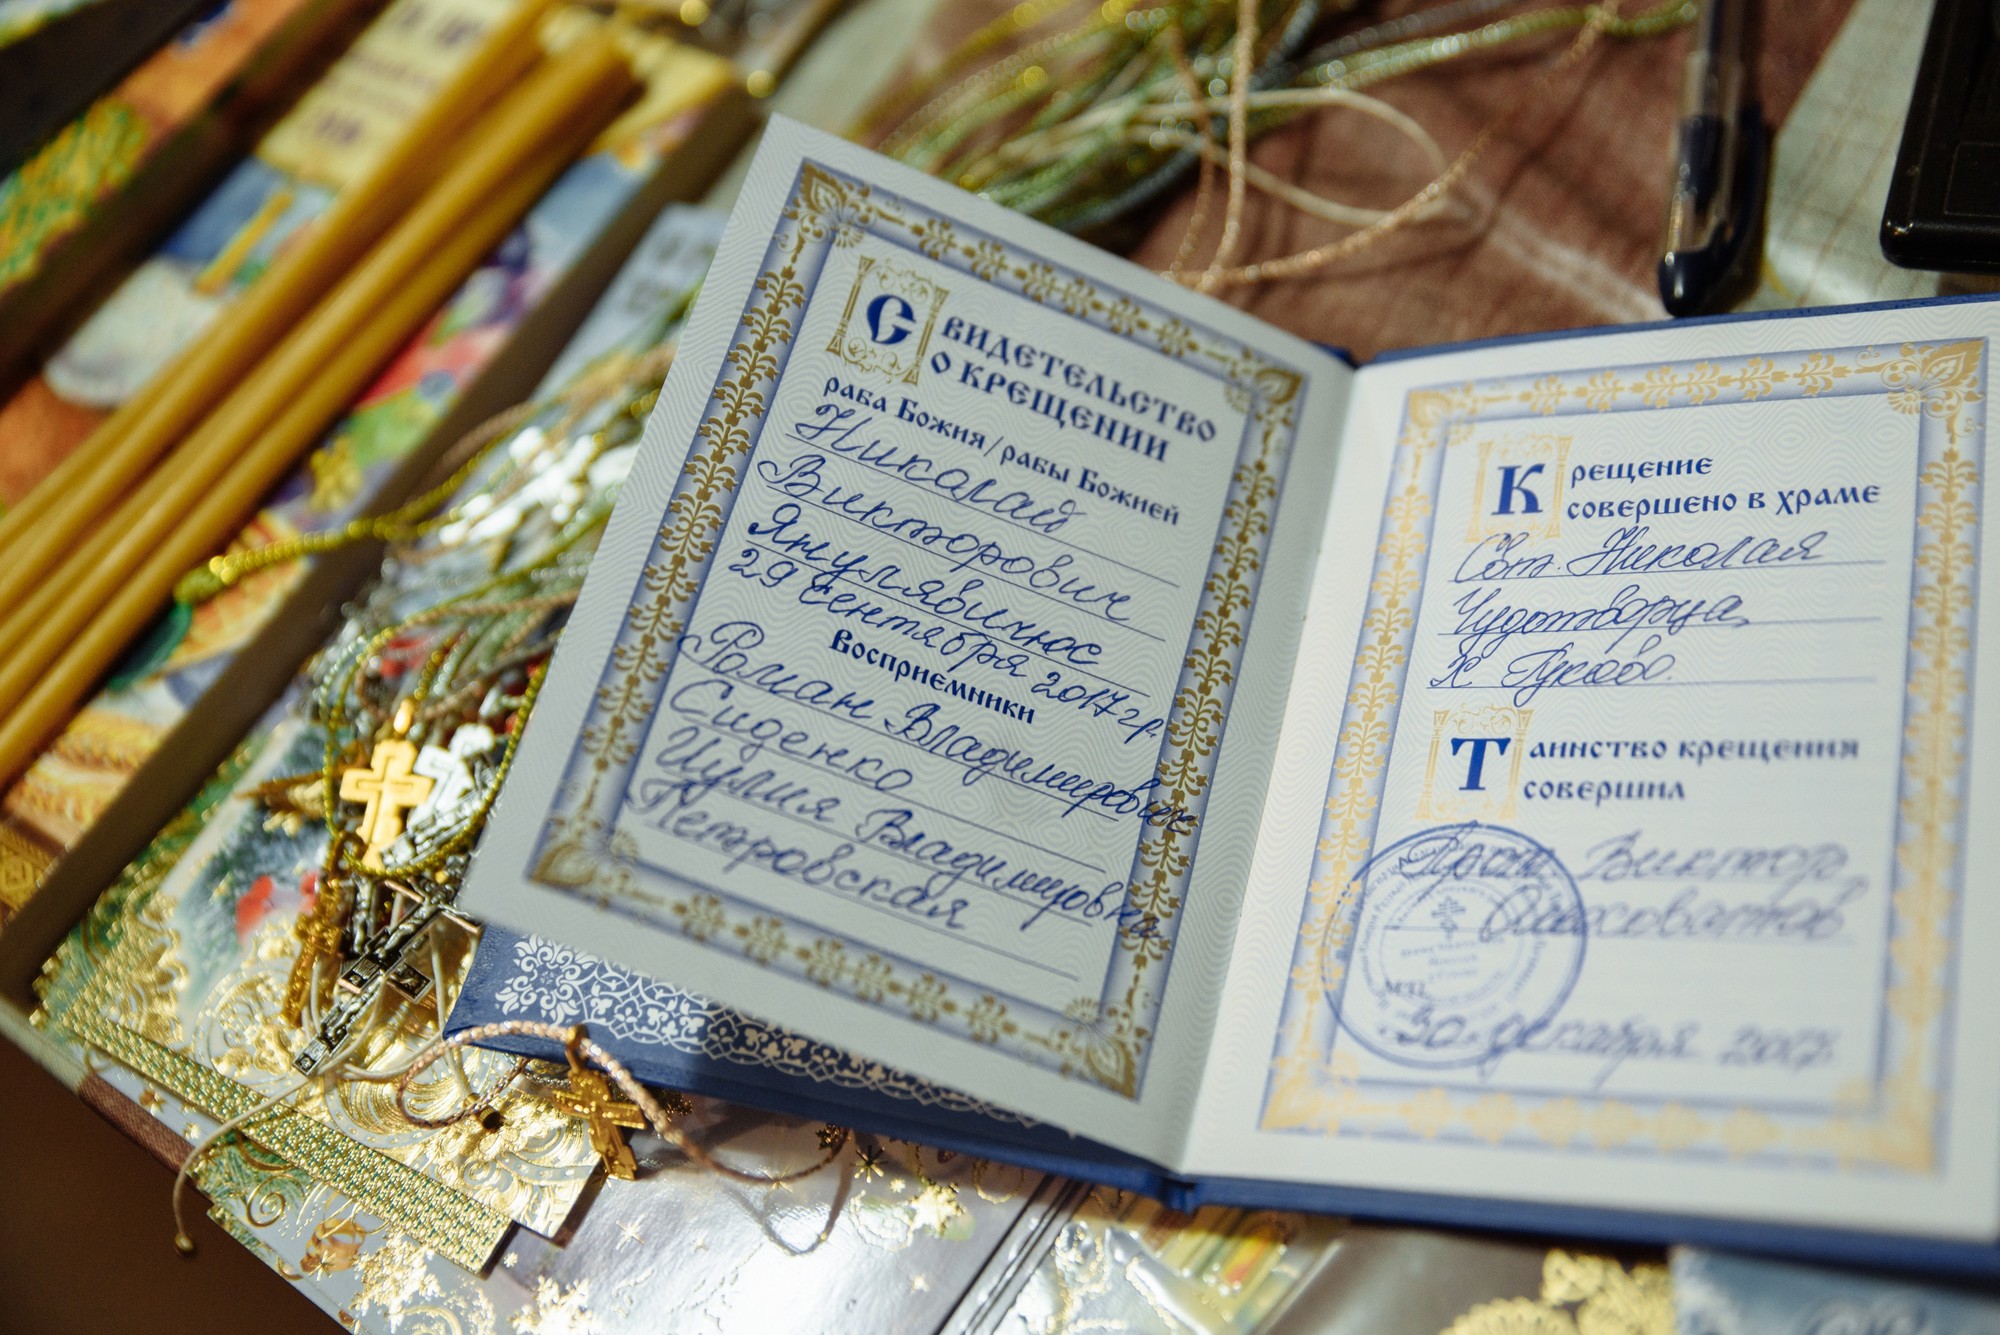 Свидетельство
о крещении
раба Божия/рабы Божией
Николай
Викторович
Янулявичюс
29 сентября 2017 г.р.
Восприемники
Роман Владимирович
Сиденко
Иулия Владимировна
Петровская
Крещение
совершено в храме
Свт. Николая
Чудотворца,
х. Гуково.
Таинство крещения
совершил
Прот. Виктор
М.П.
30 декабря 2017